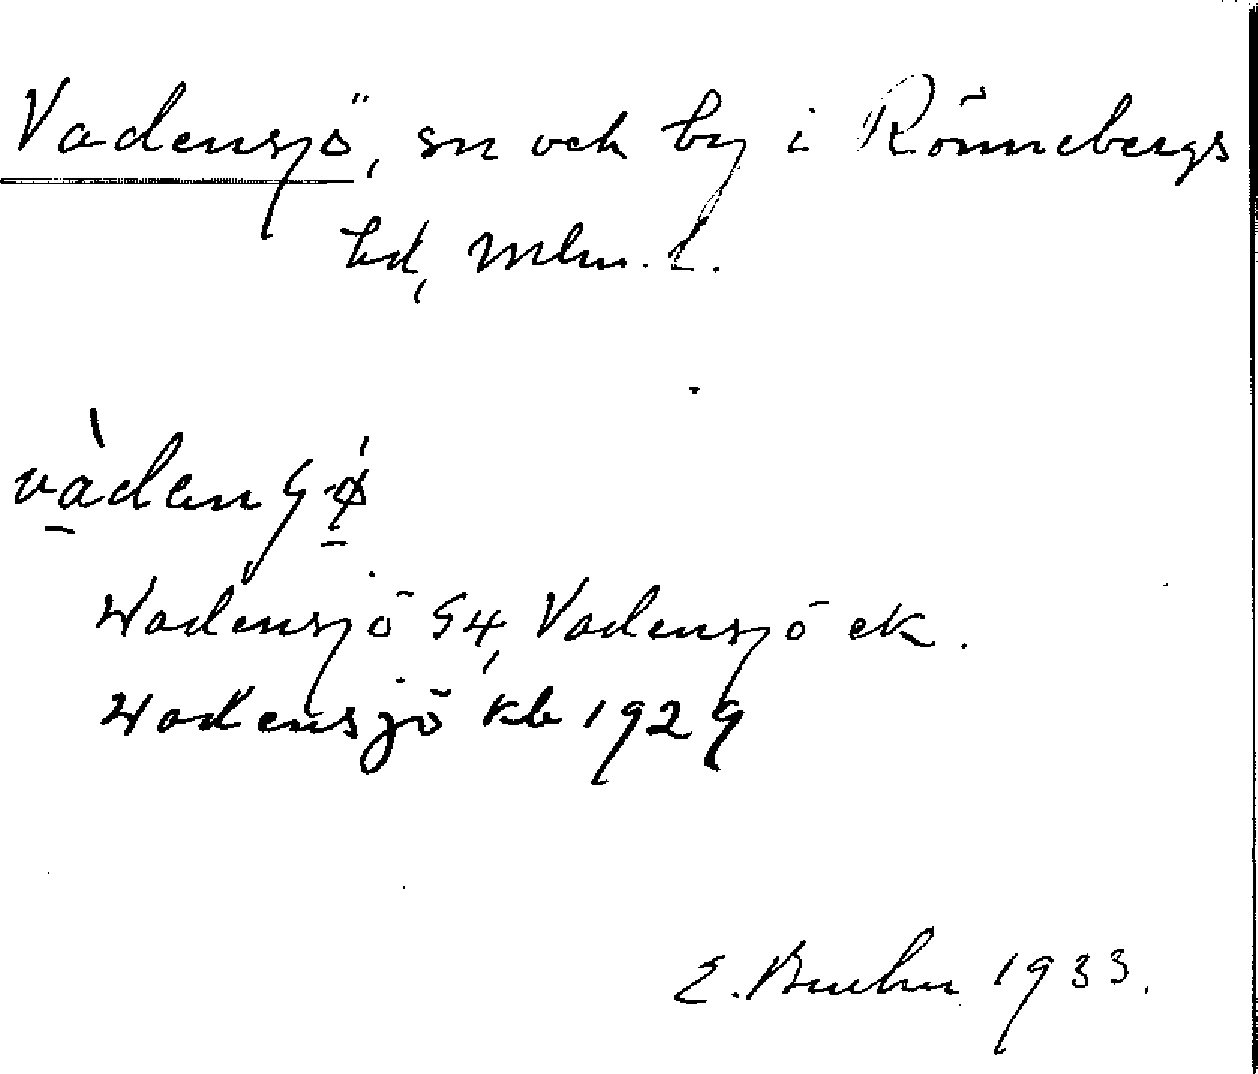 Vadensjö, sn och by i Rönnebergs
hd, Mlm. l.
Wadensjö G4, Vadensjö ek.
Wadensjö kb 1929
E. Bruhn 1933.